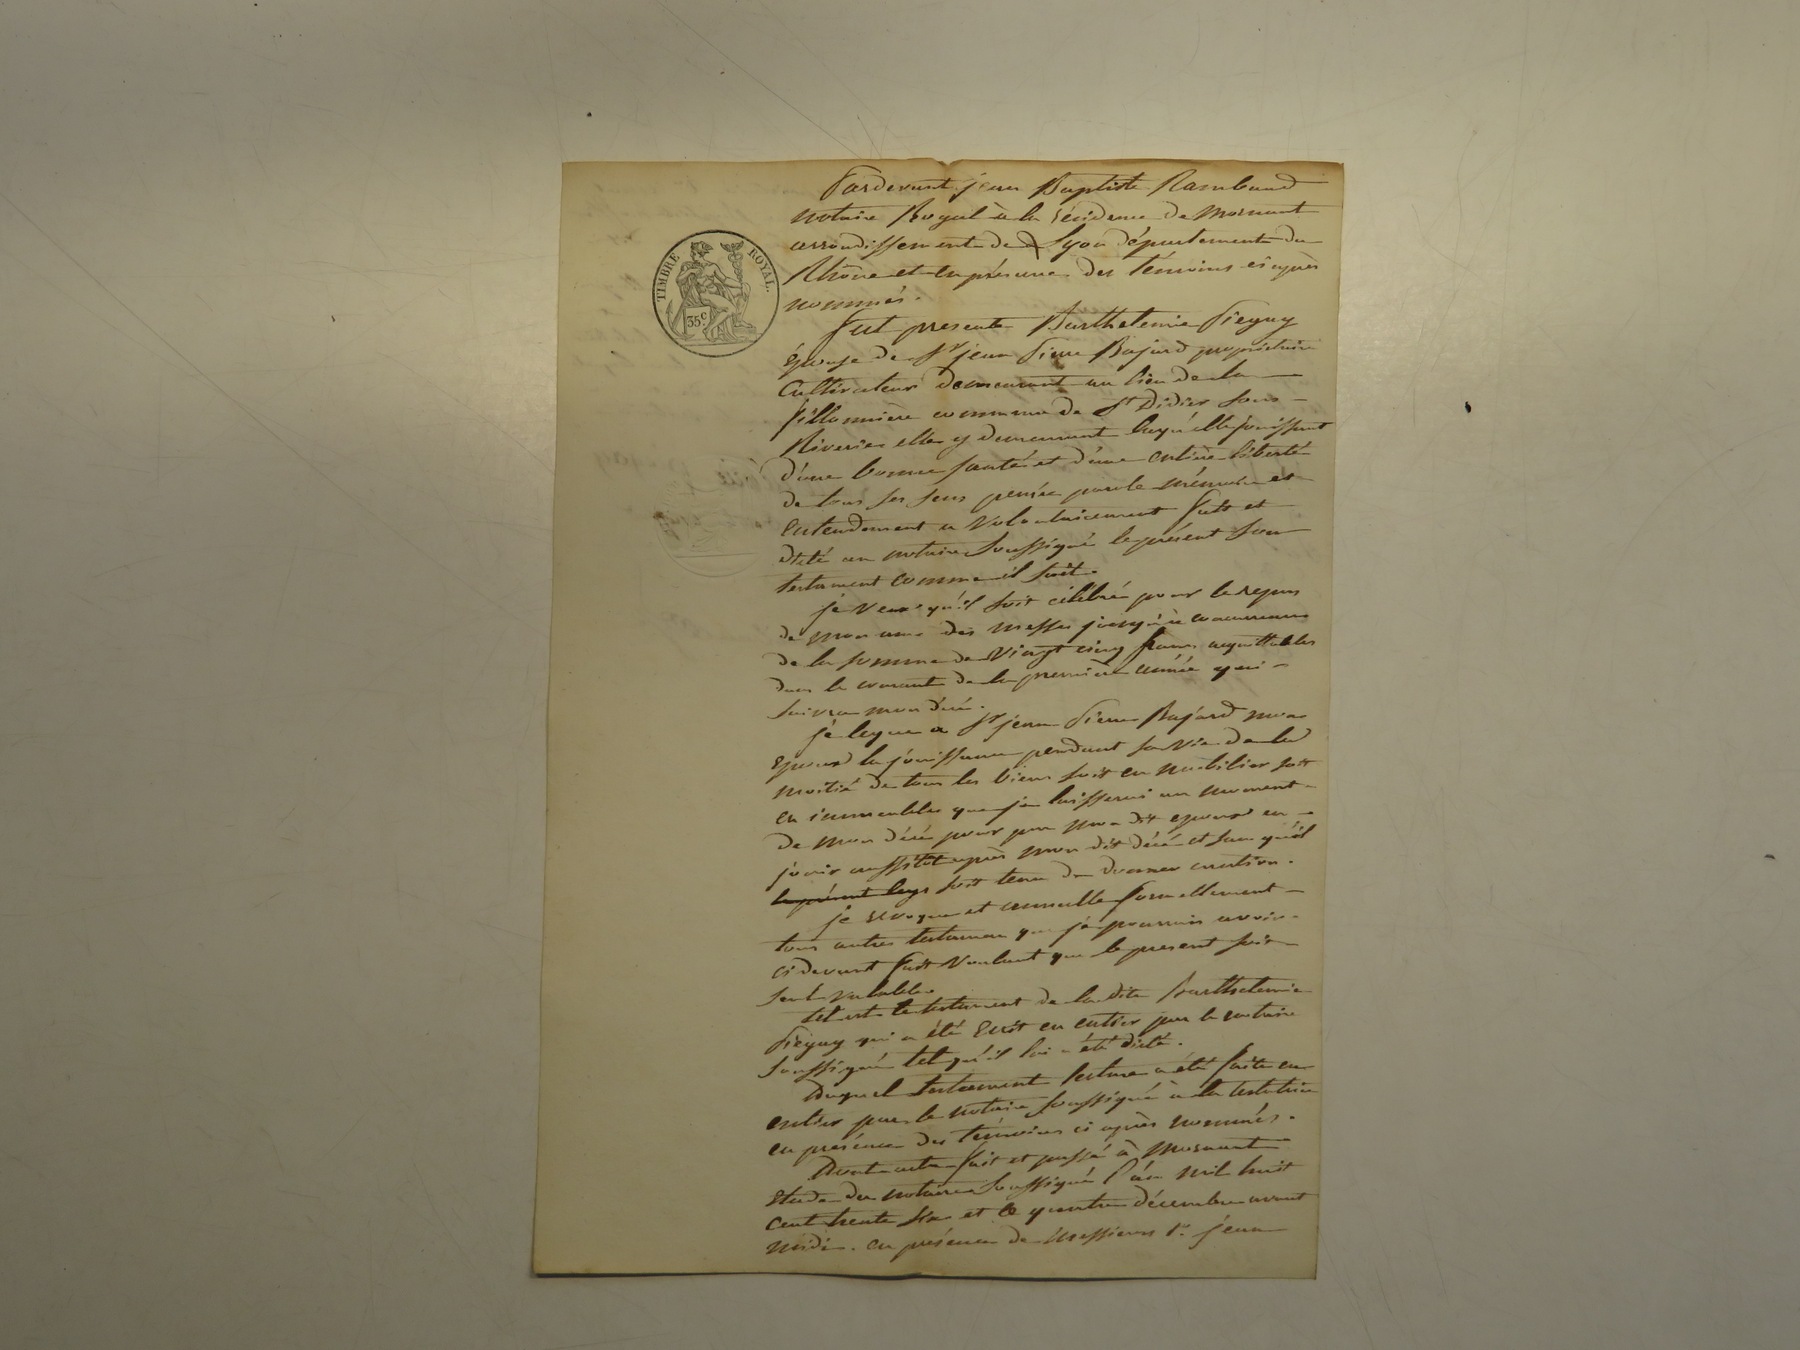 TIMBRE ROYAL.
35 c.
Pardevant jean Baptiste Rambaud
notaire Royal à la résidence de Mornant
arrondissement de Lyon département du
Rhône et en présence des témoins ci après
nommés.
Fut presente Barthelemie Pieguy
épouse de Sr jean Pierre Bajard propriétaire
Cultivateur demeurant au lieu de la
fillonnière commune de St Didier sous
Riverie elle y demeurant laquelle jouissant
d'une bonne santé et d'une entière liberté
de tous ses sens pensée parole mémoire et
Entendement a Volontairement fait et
dicté au notaire soussigné le présent son
testament comme il suit.
je veux qu'il soit célébré pour le repos
de mon ame des messes jusqu'à concurrence
de la somme de Vingt cinq francs acquittables
dans le courant de la première année qui
suivra mon décé.
je legue a Sr jean Pierre Bajard mon
epoux la jouissance pendant sa vie de la
moitié de tous les biens soit en mobilier soit
en immeubles que je laisserai au moment
de mon décé pour par mon dit epoux en
jouir aussitôt après mon dit décé et sans qu'il
le présent legs soit tenu de donner caution.
je revoque et annulle formellement
tous autres testamens que je pourrais avoir
ci devant fait Voulant que le present soit
seul valable.
tel est le testament de la dite Barthelemie
Pieguy qui a été Ecrit en entier par le notaire
soussigné tel qu'il lui a été dicté.
Duquel testament lecture a été faite en
entier par le notaire soussigné à la testatrice
en présence des témoins ci après nommés.
Dont acte fait et passé à Mornant
Etude du notaire soussigné l'an mil huit
cent trente six et le quatre décembre avant
midi. en présence de Messieurs jean